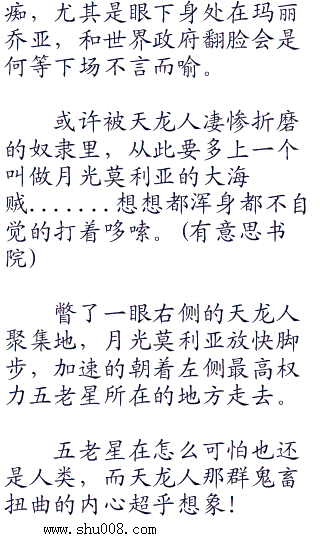 痴，尤其是眼下身处在玛丽
乔亚，和世界政府翻脸会是
何等下场不言而喻。
或许被天龙人凄惨折磨
的奴隶里，从此要多上一个
叫做月光莫利亚的大海
贼.......想想都浑身都不自
觉的打着哆嗦。(有意思书
院)
瞥了一眼右侧的天龙人
聚集地，月光莫利亚放快脚
步，加速的朝着左侧最高权
力五老星所在的地方走去。
五老星在怎么可怕也还
是人类，而天龙人那群鬼畜
扭曲的内心超乎想象！
www.shu008.com